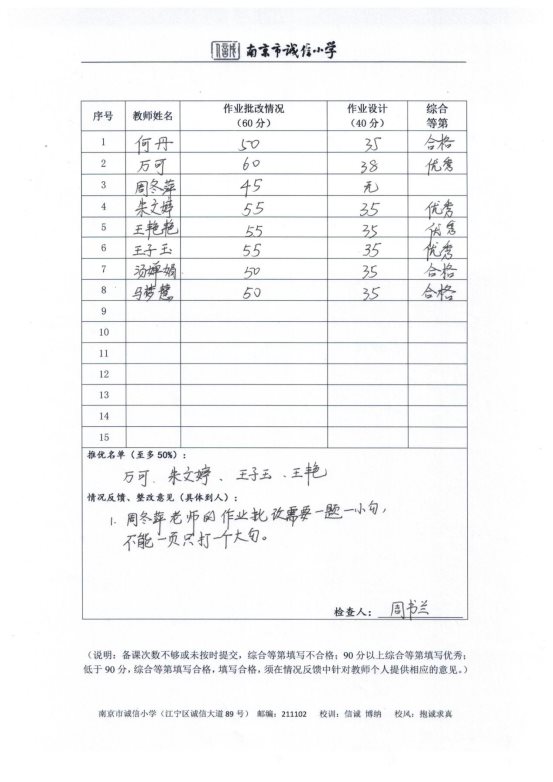 南京市诚信小学
序号 教师姓名 作业批改情况（60 分） 作业设计（40 分） 综合等第
1 何丹 50 35 合格
2 万可 60 38 优秀
3 周冬萍 45 无
4 朱文婷 55 35 优秀
5 王艳艳 55 35 优秀
6 王子玉 55 35 优秀
7 汤婵娟 50 35 合格
8 马梦慧 50 35 合格
9
10
11
12
13
14
15
推优名单（至多 50%）：
万可、朱文婷、王子玉、王艳
情况反馈、整改意见（具体到人）：
1. 周冬萍老师的作业批改需要一题一小勾，
不能一页只打一个大勾。
检查人： 周书兰
（说明：备课次数不够或未按时提交，综合等第填写不合格；90 分以上综合等第填写优秀；
低于 90 分，综合等第填写合格，填写合格，须在情况反馈中针对教师个人提供相应的意见。）
南京市诚信小学（江宁区诚信大道 89 号） 邮编：211102 校训：信诚 博纳 校风：抱诚求真